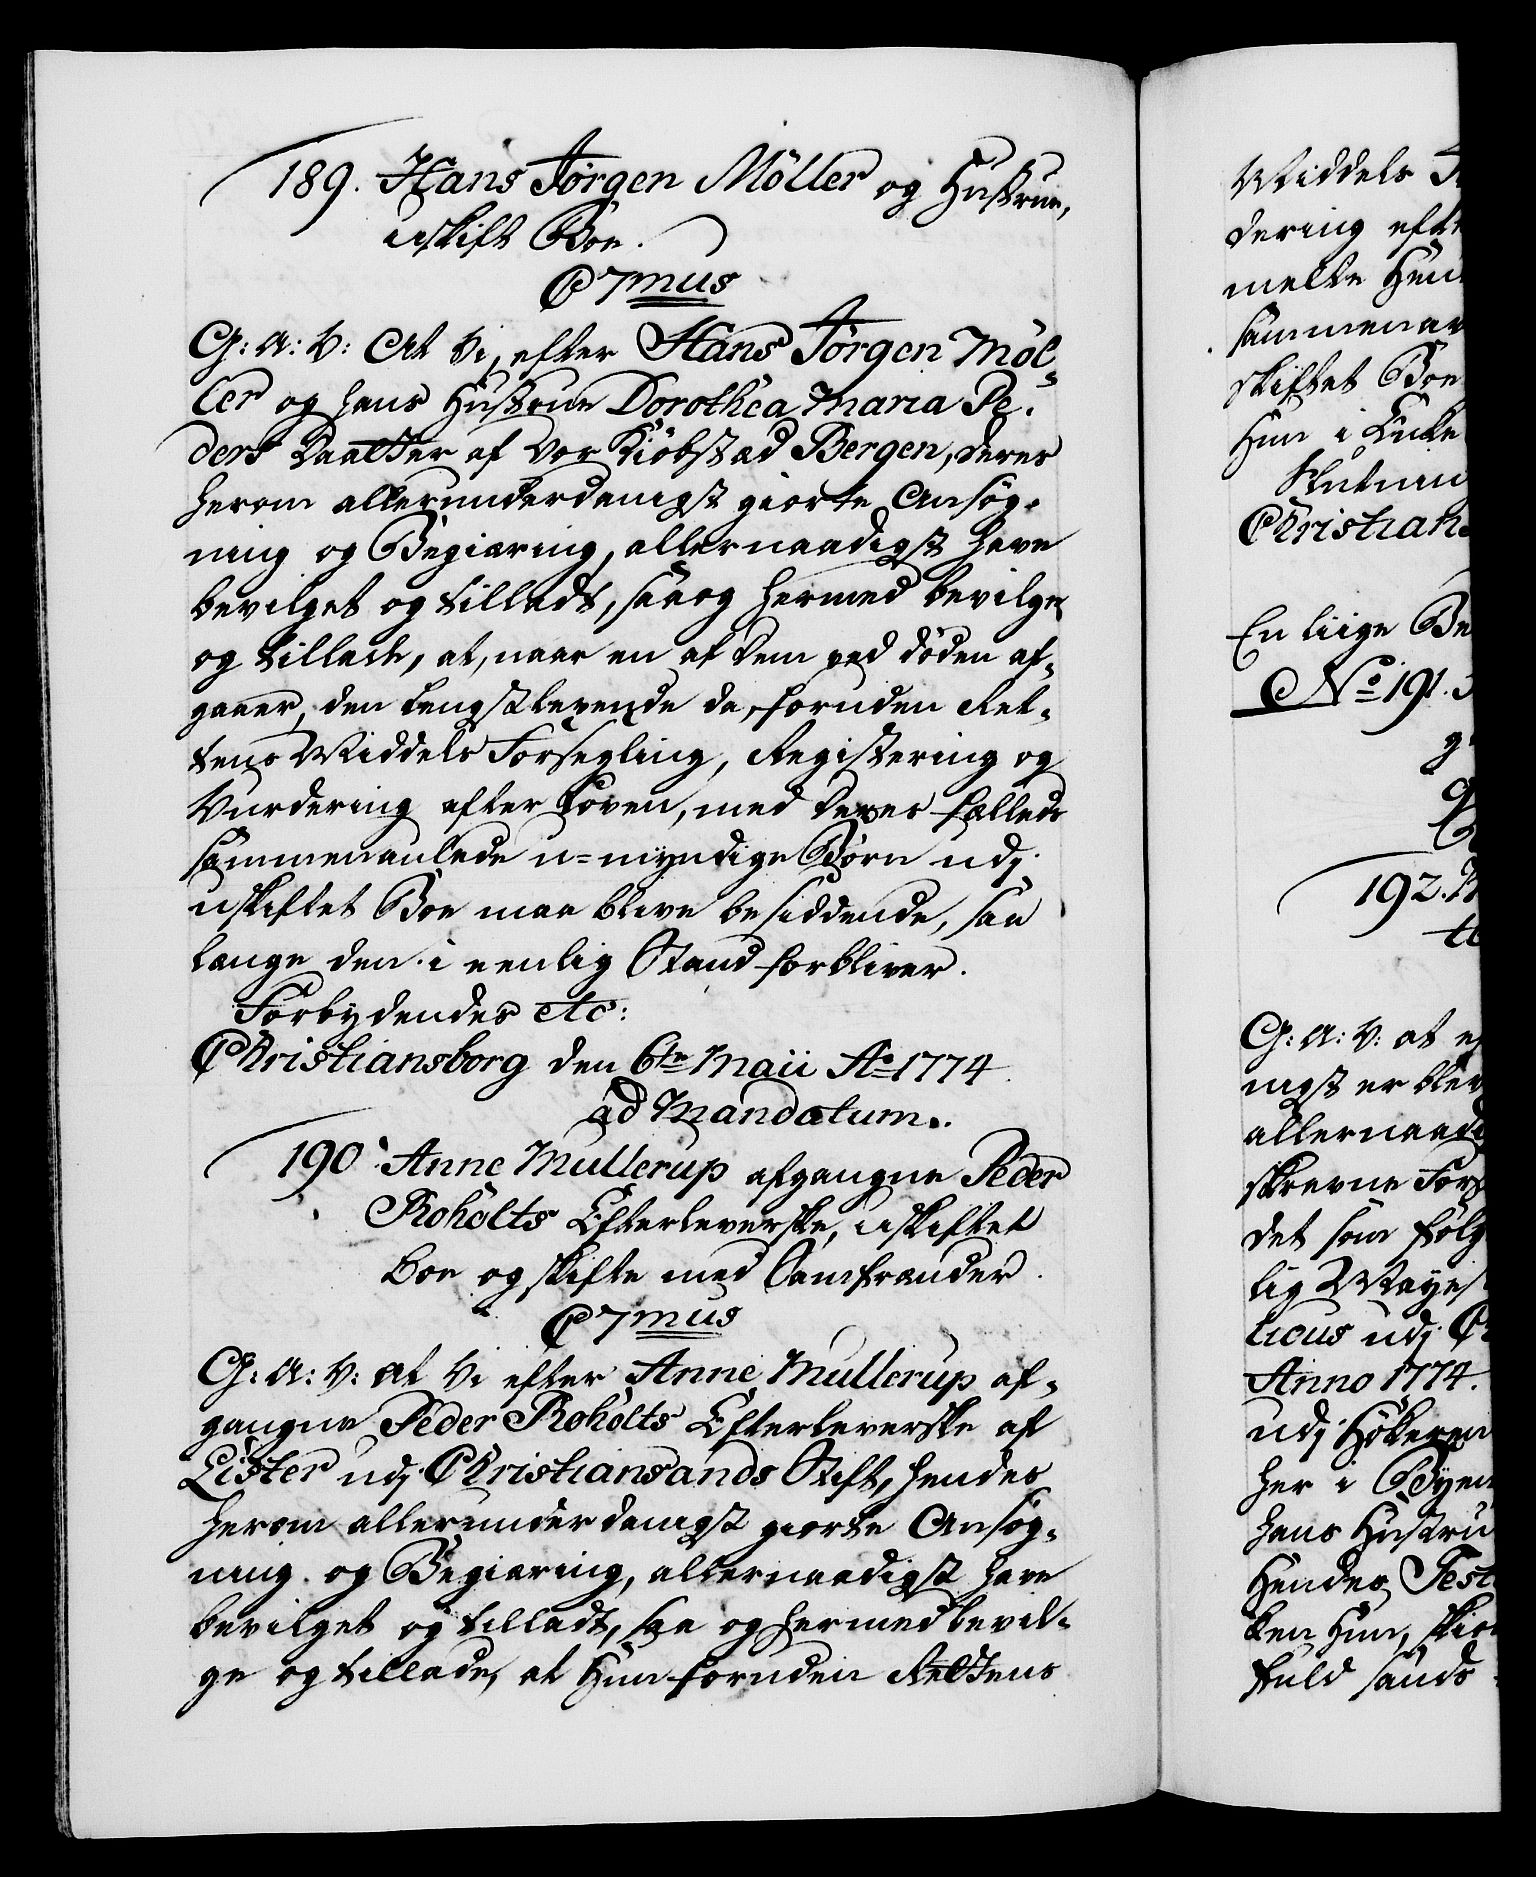 189. Hans Jørgen Møller og Hustrue,
uskift Boe.
C 7mus
G: A: V: At Vi, efter Hans Jørgen Møl-
ler og hans Hustrue Dorothea Maria Pe-
ders Daatter af vor Kiøbstad Bergen, deres
herom allerunderdanigst giorte Ansøg-
ning og Begiæring, allernaadigst have
bevilget og tilladt, saa og hermed bevilge
og tillade, at, naar en af dem ved døden af-
gaaer, den længstlevende da, foruden Ret-
tens Middels Forsegling, Registering og
Vurdering efter Loven, med deres fælleds
sammenavlede u-myndige Børn udj
uskiftet Boe maa blive besiddende, saa
længe den i eenlig Stand forbliver.
Forbydendes etc:
Christiansborg den 6te Maii Ao 1774.
ad Mandatum.
190. Anne Mullerup afgangne Peder
Roholts Efterleverske, uskiftet
Boe og skifte med Samfrænder.
C 7mus
G: A: V: at Vi efter Anne Mullerup af-
gangne Peder Roholts Efterleverske af
Lister udj Christiansands Stift, hendes
herom allerunderdanigst giorte Ansøg-
ning og Begiæring, allernaadigst have
bevilget og tilladt, saa og hermed bevil-
ge og tillade, at Hun foruden Rettens
Middels
dering efte
melte Hen
sammenav
skiftet Boe
Hun i Enke
Slutnin
Christian
En liige Be
No 191.
192.
G: A: V: at
nigst er blev
allernaadi
skrevne For
det som følg
lig Mayes
licus udj C
Anno 1774.
udj Høkeren
her i Byen
hans Hustru
Hendes Test
ken Hun,
fuld sands